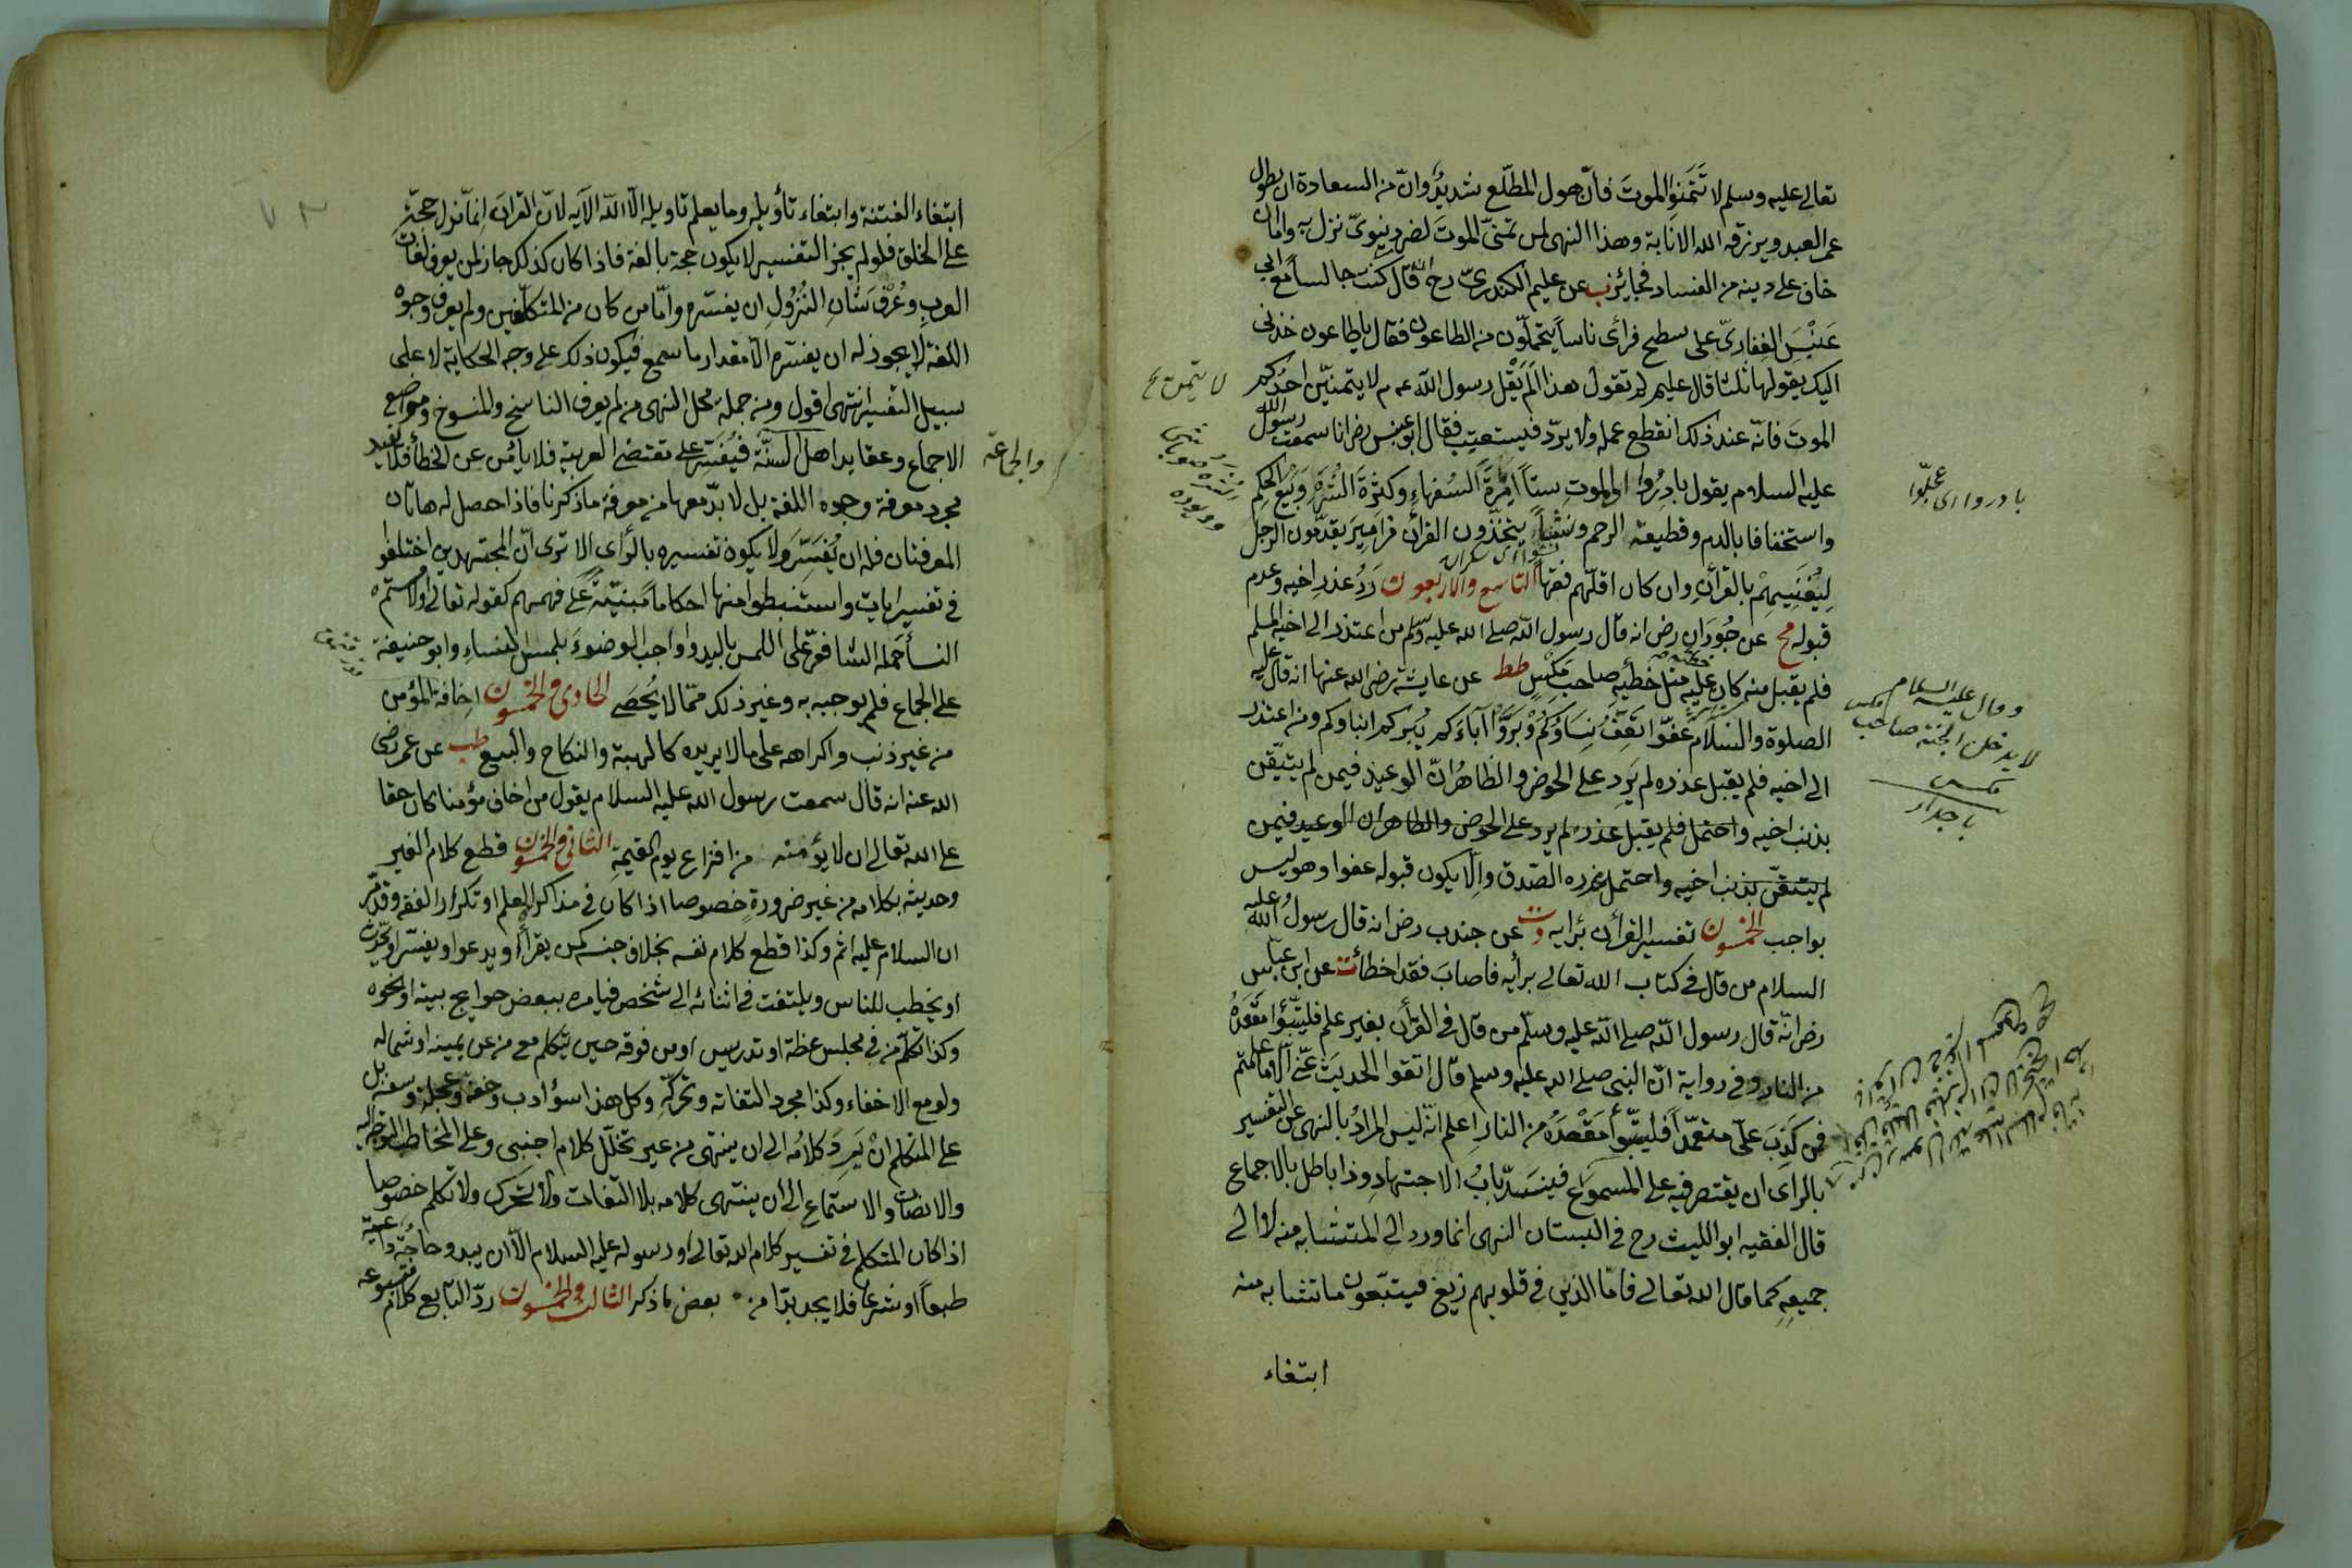 تعالى عليه وسلم لا تَتَمَنَّوا الموتَ فانّ هول المطّلع شديدٌ وانّ من السعادة ان يطول
عمر العبد ويرزقه الله الانابة وهذا النهى لمن تمنىّ الموتَ لضرّ دنيوىّ نزل به واما ان
خاف على دينه من الفساد فجائز ب عن عليم الكندىّ رح انه قال كنت جالساً مع ابى
عَنْبَسَ الغِفارىّ على سطح فرأى ناساً يتحمّلون من الطاعون فقال يا طاعون خذنى
اليك يقولها ثلثا قال عليم لم تقول هذا اَلَمْ يَقُل رسول الله عم لا يتمنيّن احدُكم
الموتَ فانّه عند ذلك انقطع عمله ولا يردّ فيستعتب فقال ابو عبس رض انا سمعت رسول الله
عليه السلام يقول بادِرُوا بالموت ستاً اِمْرَةَ السُفهاءِ وكثرةَ الشُرَطِ وَبَيْعَ الحكم
واستخفافا بالدم وقطيعة الرحم ونَشْئاً يتخذون القرأن مزاميرَ يقدّمون الرجل
لِيُغَنِّيهمْ بالقرأنِ وان كان اقلّهم فقهاً التاسع والاربعون رَدُّ عذرِ اخيه وعدم
قبوله مج عن جُودَانِ رض انه قال رسول الله صلى الله عليه وسلم من اعتذر الى اخيه المسلم
فلم يقبل منه كان عليه مثل خطئيه صاحب مَكْسٍ طط عن عايشة رضى الله عنها انه قال عليه
الصلوة والسلام عِفوّا تَعِفّ نِسَاؤكُمْ وبَرّوُا آباءَكم يَبركم ابناؤكم ومن اعتذر
الى اخيه فلم يقبل عذره لم يَرِد على الحوض والظاهرُ انّ الوعيد فيمن لم يتيقّن
بذنب اخيه واحتمل فلم يقبل عذره لم يرد على الحوض والظاهر ان الوعيد فيمن
لم يتيقّن بذنب اخيه واحتمل عذره الصّدق واِلّا يكون قبوله عفوا وهو ليس
بواجب الخمسون تفسير القرأن برايه د ت عن جندب رض انه قال رسولُ الله عليه
السلام من قال فى كتاب الله تعالى برأيه فاصابَ فقد اخطأ ت عن ابن عبّاس
رض انّه قال رسول الله صلى الله عليه وسلّم من قال فى القرأن بغير علم فليتبّؤا مقعَدَهُ
من النار وفى رواية انّ النبى صلى الله عليه وسلم قال اتقوا الحديثَ عنّى اِلّا ما علمتم
فمن كَذَبَ علىّ متعمّداً فليتبّوأ مَقْعَدَهُ من النار اِعلم انّه ليس المرادُ بالنهى عن التفسير
بالراى ان يقتصر فيه على المسموع فينسَدّ بابُ الاجتهادِ وذا باطل بالاجماع
قال الفقيه ابو الليث رح فى البستان النهى انما ورد الى المتشابه منه لا الى
جميعِهِ كما قال الله تعالى فامّا الذين فى قلوبهم زيغ فيتبّعون ما تشابه منه
ابتغاء
لا يتمن
بادروا اى عجّلوا
وقال عليه السلام
لا يدخل الجنة صاحب مكس
مكس
باجدار
ابتغاء الفتنة وابتغاء تأويله وما يعلم تاويله اِلّا الله الآيه لانّ القرآنَ اِنمّا نزل حجّة
على الخلق فلو لم يجز التفسير لا يكون حجة بالغة فاذا كان كذلك جاز لمن يعرف لغات
العربِ وعُرْفَ شَأنِ النُزُولِ ان يفسّره وامّا من كان من المتكلّفين ولم يعرف وجوه
اللغة لا يجوز له ان يفسّره الّا مقدار ما سمع فيكون ذلك على وجه الحكاية لا على
سبيل التفسير انتهى اقول ومن جملة محل النهى من لم يعرف الناسخ والمنسوخ ومواضع
الاجماع وعقايد اهل السنّة فيُفسّر على مقتضى العربية فلا يأمن عن الخطأ فلا يفيد
مجرد معرفة وجوه اللغة بل لا بدّ معها من معرفة ما ذكرنا فاذا حصل له هاتان
المعرفتان فله ان يُفَسِّرَ ولا يكون تفسيره بالرّأى الا ترى انّ المجتهدين اختلفوا
فى تفسير ايات واستنبطوا منها احكاماً مَبنيّة على فهمهم كقوله تعالى او لامستم
النسأ حَمله الشافعىّ على اللمس باليد واوجب الوضوءَ بلمس النساءِ وابو حنيفة
على الجماع فلم يوجبه به وغير ذلك ممّا لا يُحْصَى الحادى والخمسون اِخافة المؤمن
من غير ذنب واكراهه على ما لا يريده كالهبة والنكاح والبيع طب عن عمر رضى
الله عنه انه قال سمعت رسول الله عليه السلام يقول من اخاف مؤمنا كان حقا
على الله تعالى ان لا يؤمنه من افزاع يوم القيمة الثانى والخمسون قطع كلام الغير
وحديثه بكلامه من غير ضرورة خصوصا اذا كان فى مذاكرة العلم او تكرار الفقه وقد مرّ
ان السلام عليه اثم وكذا قطع كلام نفسه بخلاف جنسه كمن يقرأ او يدعوا ويفسّر او يحدّث
او يخطب للناس ويلتفت فى اثنائه الى شخص فيامره ببعض حوايج بيته او نحوه
وكذا تكلّم من فى مجلس عظة او تدريس او من فوقه حين يتكلم مع من عن يمينه او شماله
ولو مع الاخفاء وكذا مجرد التفاته وتحركّه وكل هذا سؤ ادب وخفّة وعجلة وسفه بل
على المتكلم انْ يَرِدَ كلامُه الى ان ينتهى من غير تخلّل كلام اجنبى وعلى المخاطب التوجّه اليه
والانصات والاستماع الى ان ينتهى كلامه بلا التفات ولا تحرّك ولا تكلم خصوصا
اذا كان المتكلم فى تفسير كلام الله تعالى او رسوله عليه السلام الّا ان يبدو حاجة داعية
طبعاً او شرعا فلا يجد بدّا من بعض ما ذكر الثالث والخمسون ردّ التابع كلام متبوعه
والجماعة